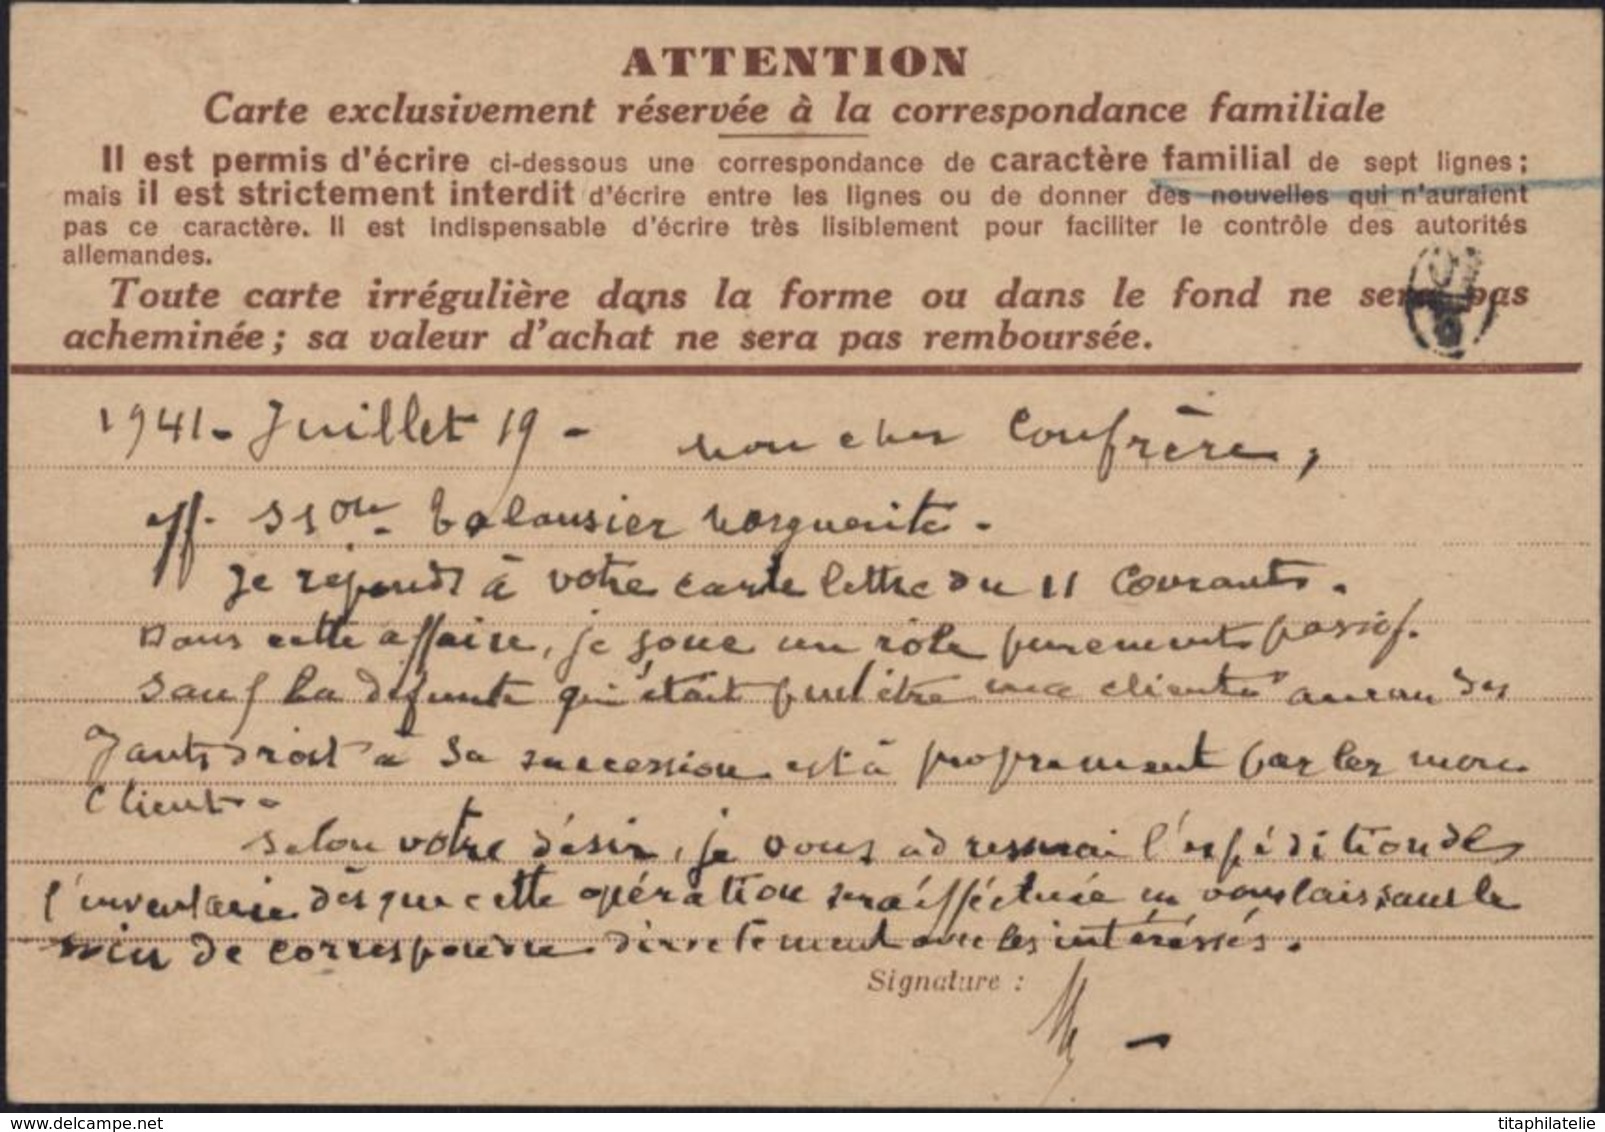 ATTENTION
Carte exclusivement réservée à la correspondance familiale
Il est permis d'écrire ci-dessous une correspondance de caractère familial de sept lignes;
mais il est strictement interdit d'écrire entre les lignes ou de donner des nouvelles qui n'auraient
pas ce caractère. Il est indispensable d'écrire très lisiblement pour faciliter le contrôle des autorités
allemandes.
Toute carte irrégulière dans la forme ou dans le fond ne sera pas
acheminée; sa valeur d'achat ne sera pas remboursée.
1941 - Juillet 19 - mon cher Confrère,
aff. ssion balansier Marguerite.
Je réponds à votre carte lettre du 11 Courant.
Dans cette affaire, je joue un rôle purement passif.
Sauf la défunte qui était peut être ma cliente aucun des
ayants droit à sa succession est à proprement parler mon
client.
Selon votre désir, je vous adresserai l'expédition de
l'inventaire dès que cette opération sera éffectuée en vous laissant le
soin de correspondre directement avec les intéréssés.
Signature :
titaphilatelie